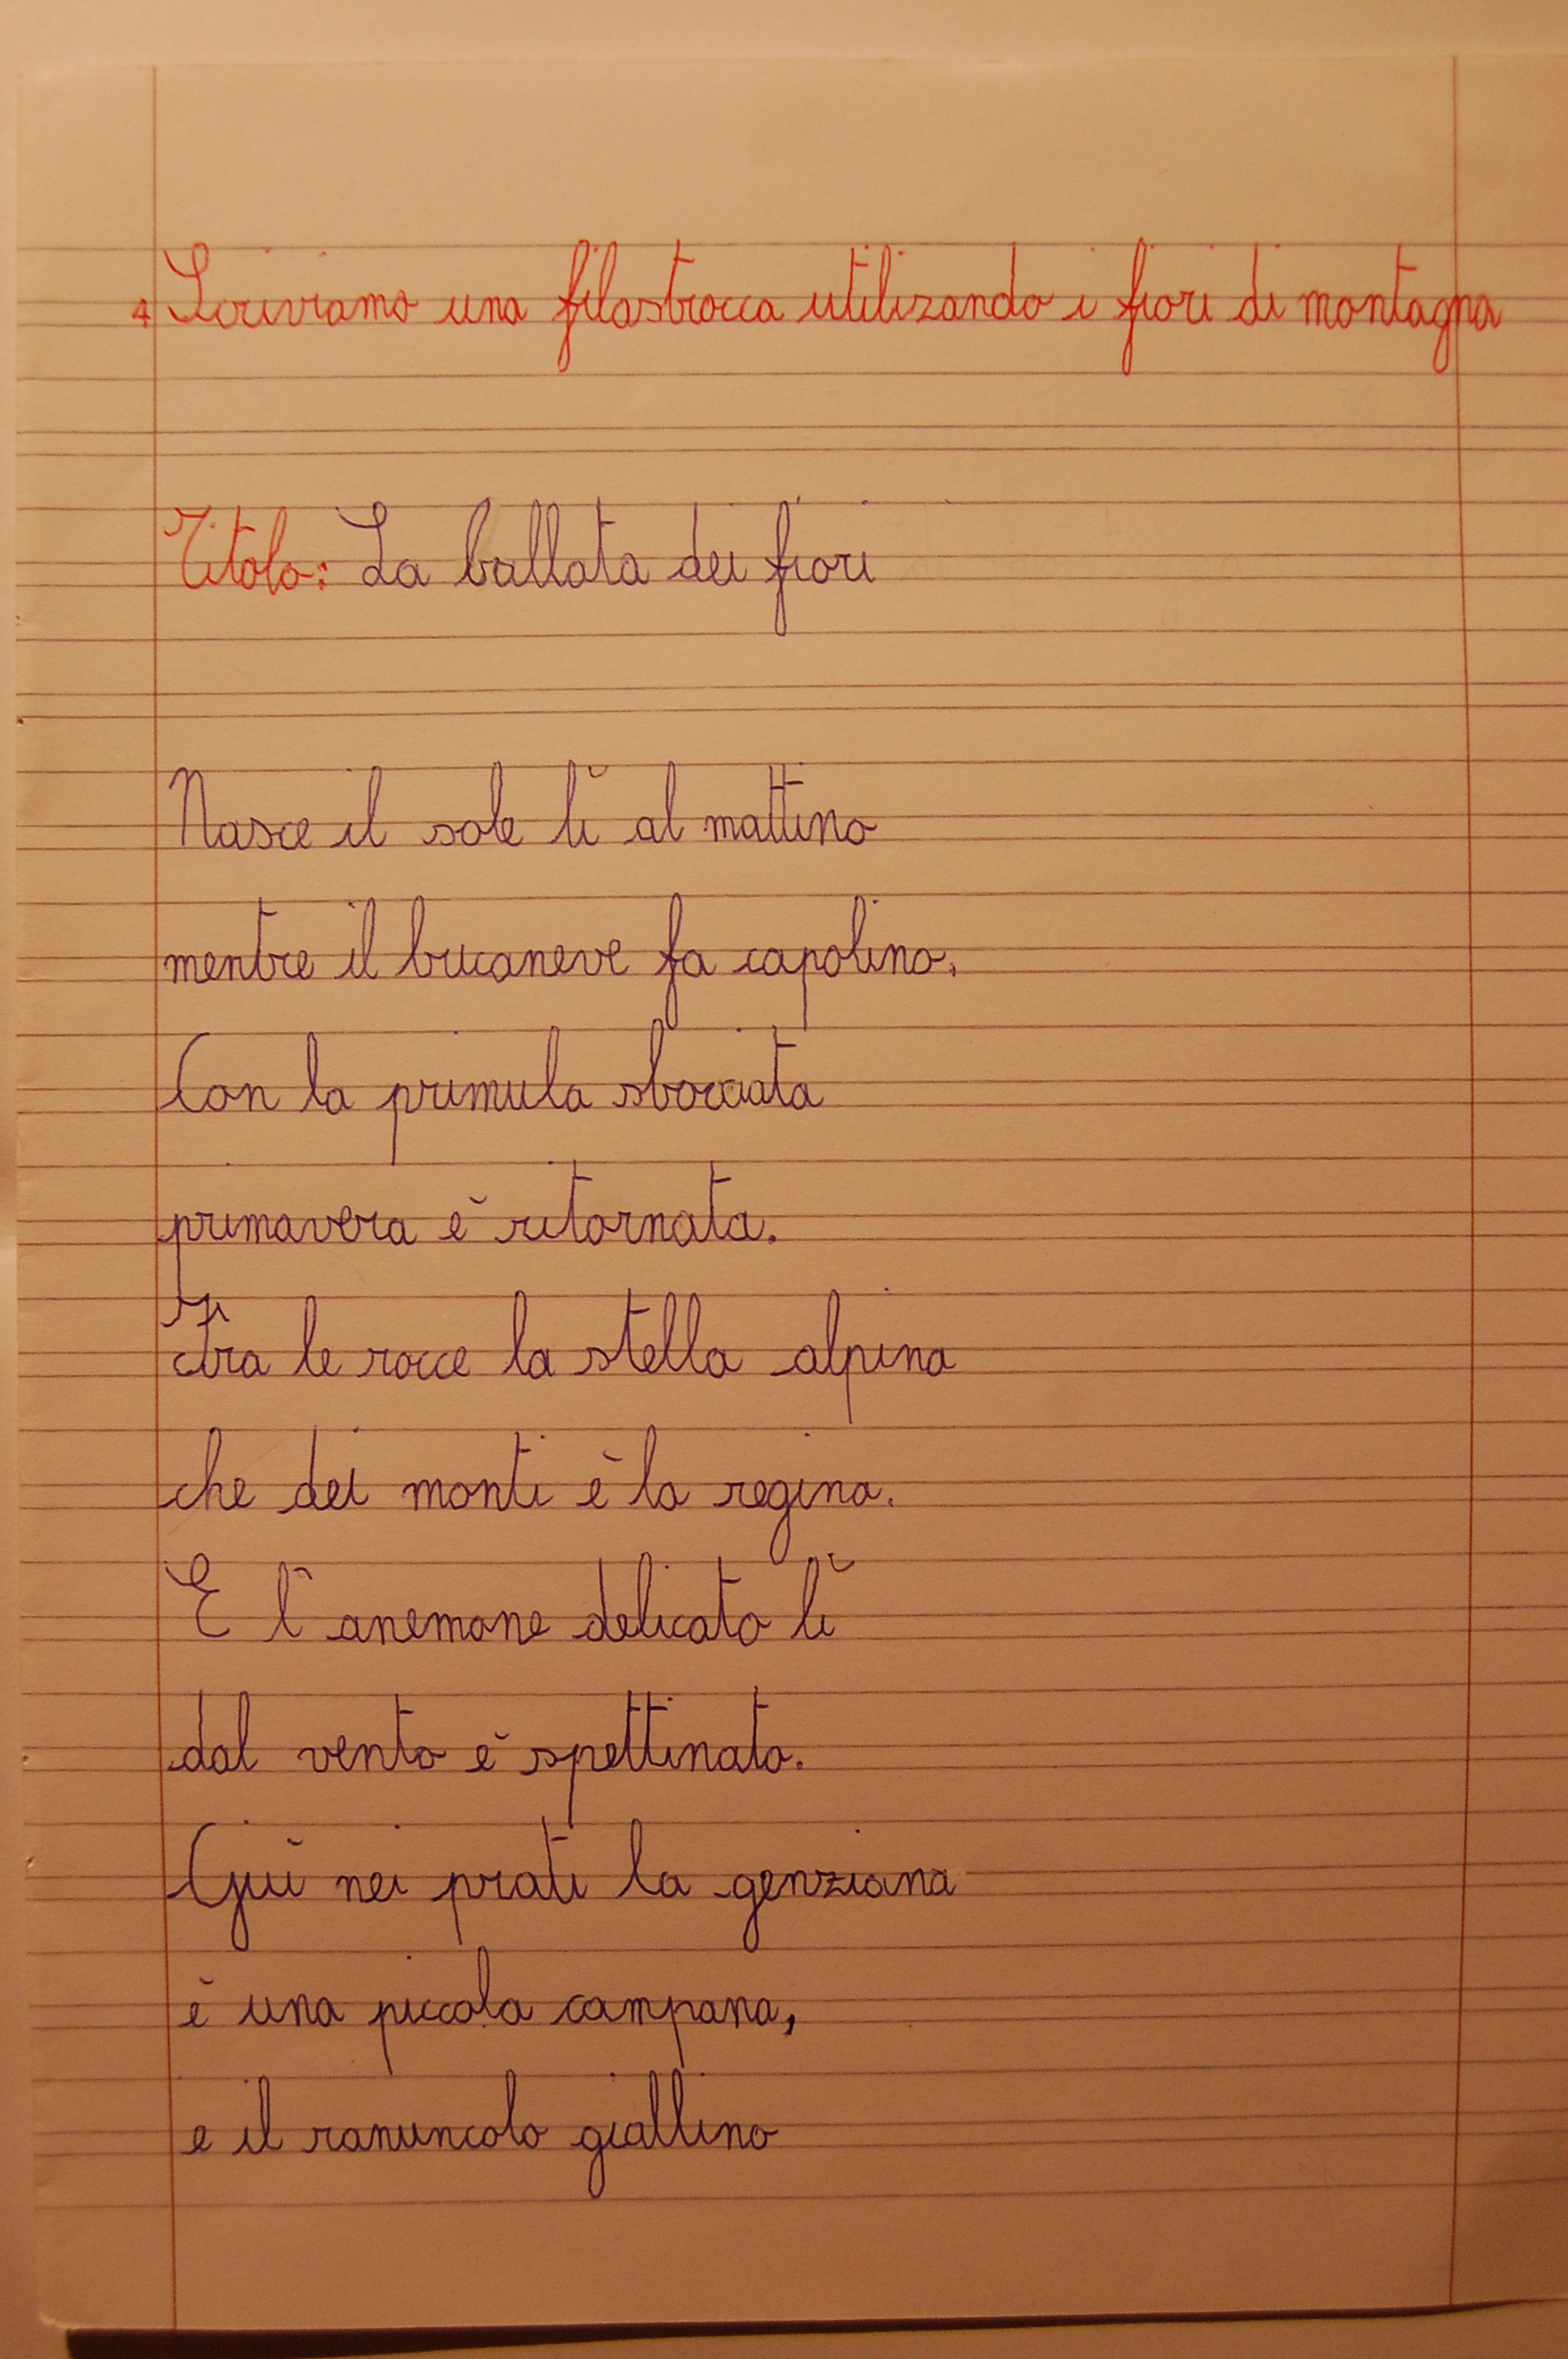 4 Scriviamo una filastrocca utilizando i fiori di montagna
Titolo: La ballata dei fiori
Nasce il sole lì al mattino
mentre il bucaneve fa capolino.
Con la primula sbocciata
primavera è ritornata.
Tra le rocce la stella alpina
che dei monti è la regina.
E l'anemone delicato lì
dal vento è spettinato.
Giù nei prati la genziana
è una piccola campana,
e il ranuncolo giallino